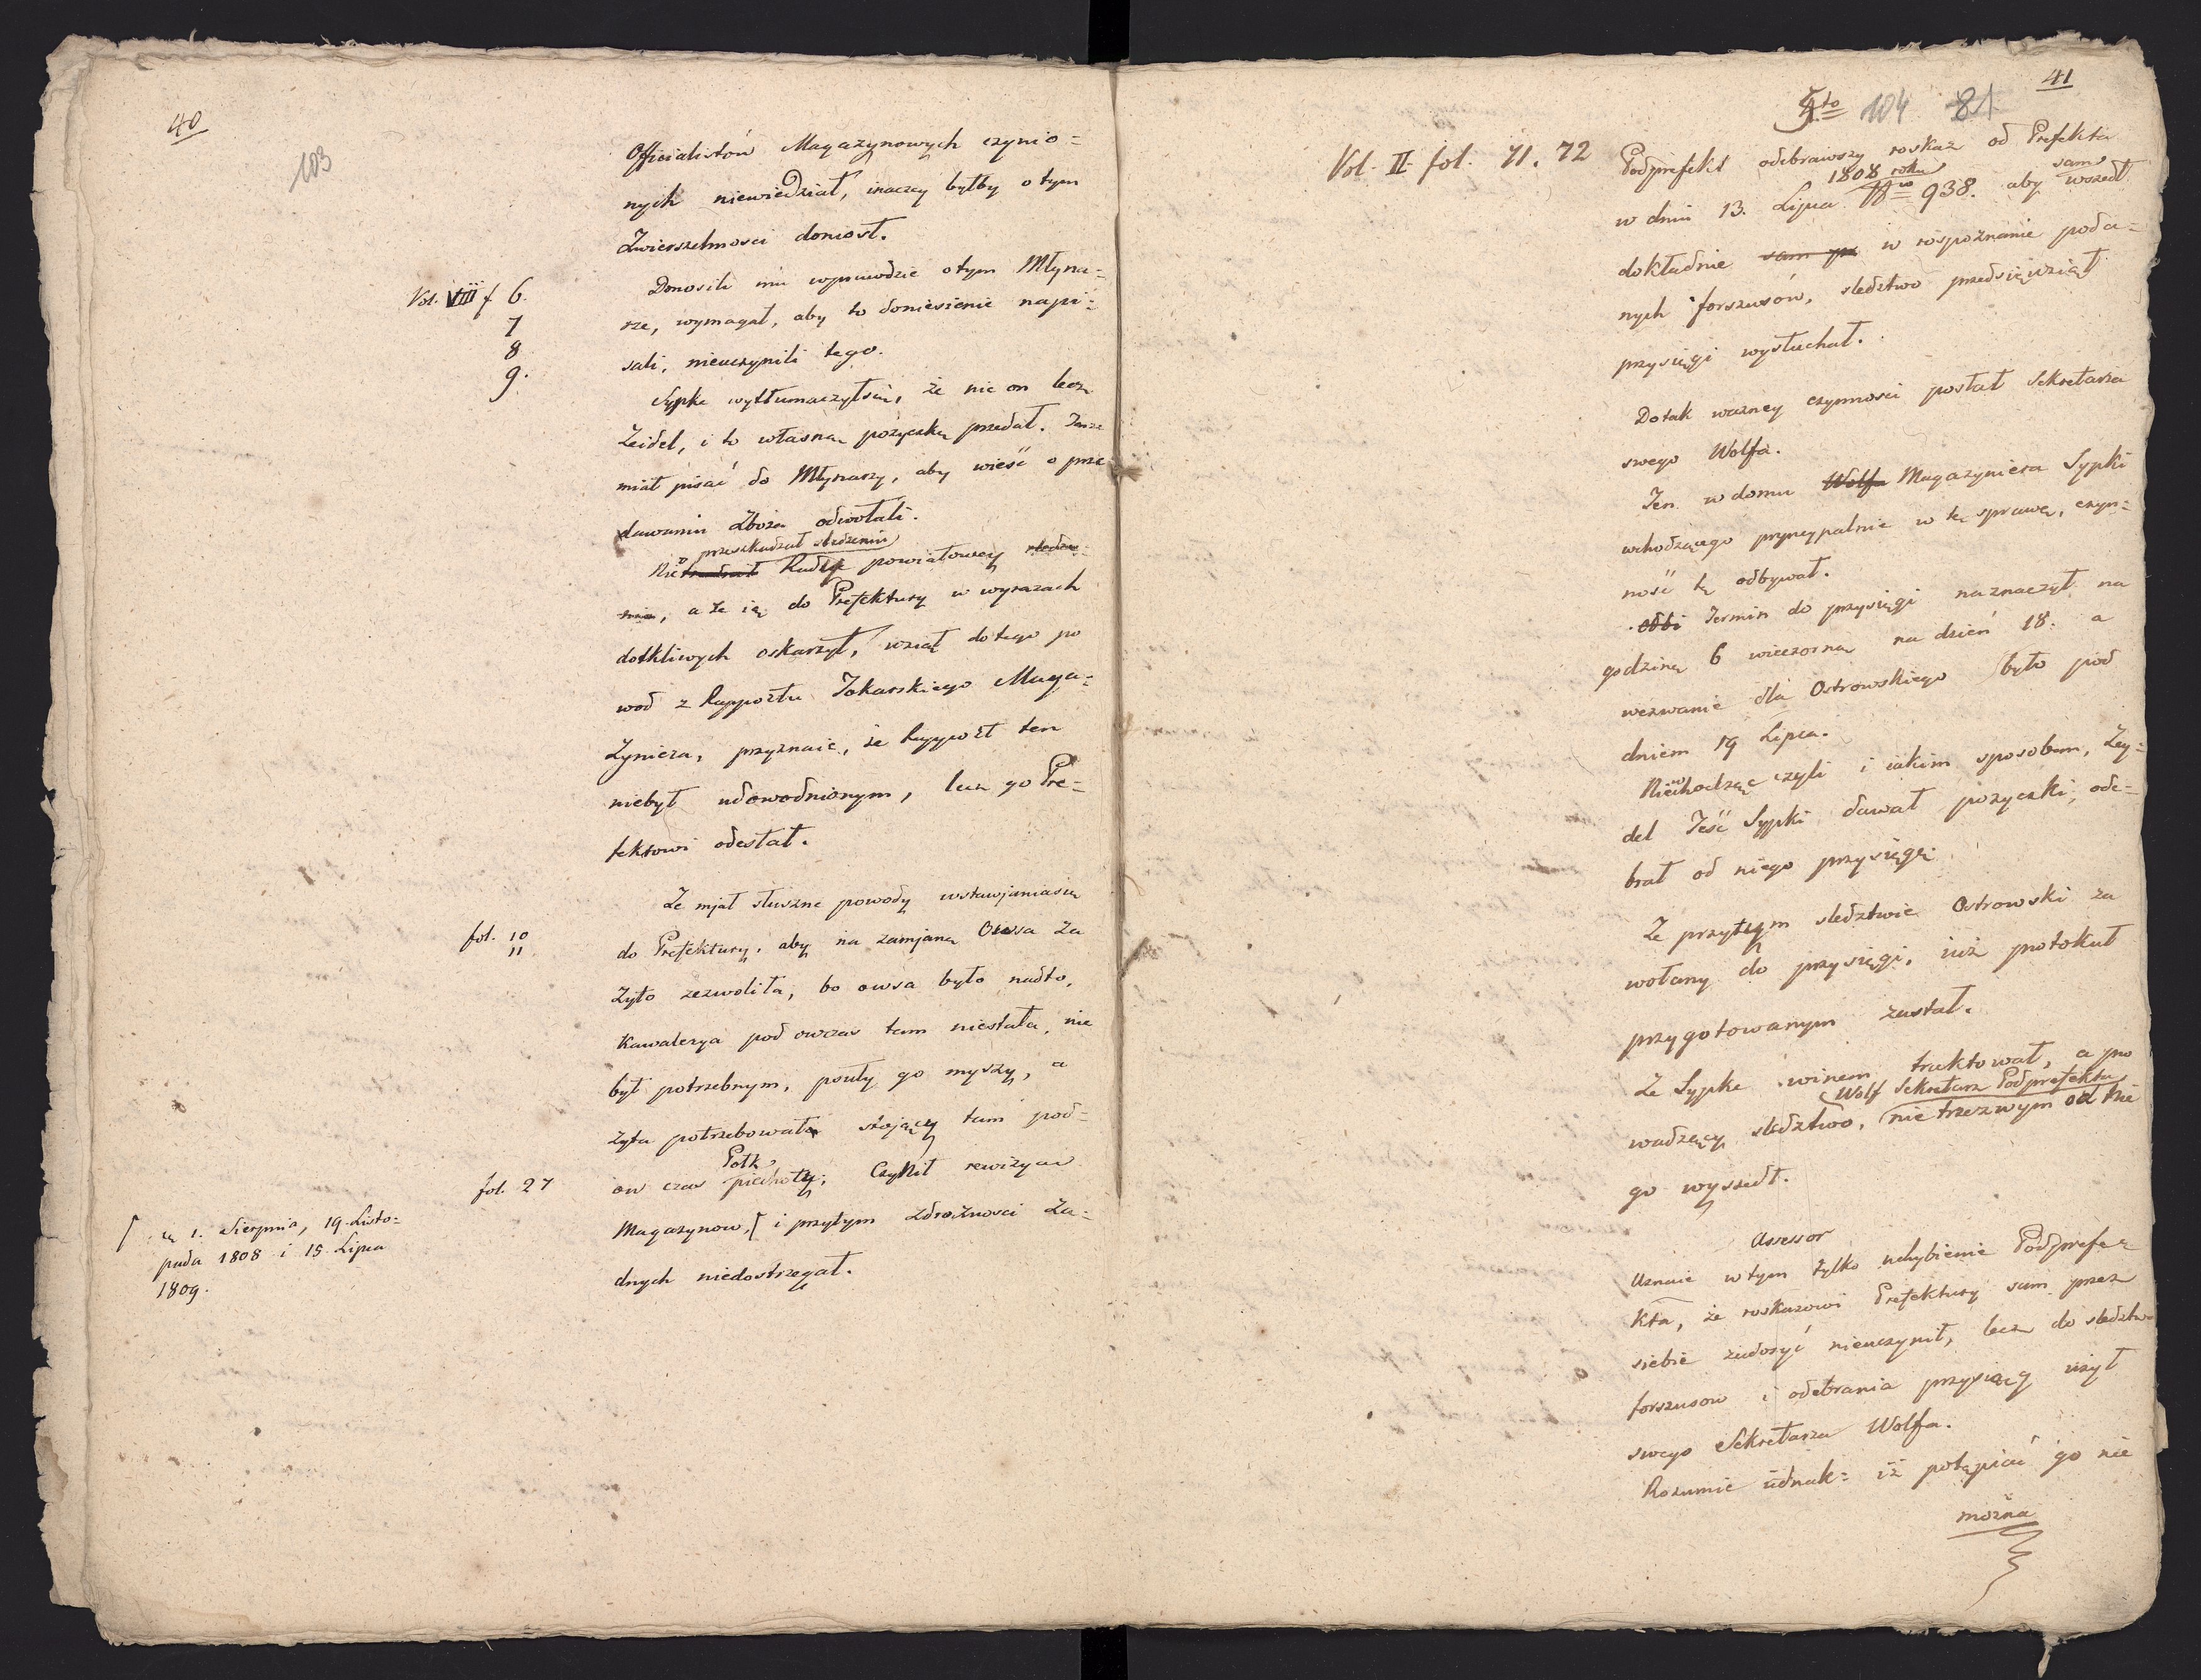 40
103
Officialistów Magazynowych czynio=
nych niewiedział, inaczey byłby o tym
Zwierzchnosci doniosł.
Vol. VIII f 6.
7
8
9.
Donosili mu wprawdzie o tym Młyna=
rze, wymagał, aby to doniesienie napi=
sali, nieuczynili tego.
Sypke wytłumaczyłsię, że nie on lecz
Zeidel, i to własną pożyczkę przedał.
miał pisać do Młynarzy, aby wieść o prze
dawaniu zboża odwołali.
przeszkadzał sledzeniu
Nie Radzę powiatowey
, a że ią do Prefektury w wyrazach
dotkliwych oskarżył, wziął do tego po
wod z Rapportu Tokarskiego Maga=
zyniera, przyznaie, że Rapport ten
niebył udowodnionym, lecz go Pre=
fektowi odesłał.
fol. 10
11
Ze mjał słuszne powody wstawjaniasię
do Prefektury, aby na zamjanę Owsa za
Zyto zezwoliła, bo owsa było nadto,
Kawalerya pod owczas tam niestała, nie
był potrzebnym, psuły go myszy, a
zyta potrzebował stojący tam pod=
Połk
ow czas piechoty; Czynił rewizyą
fol. 27
Magazynow, [ i przytym zdrożnosci ża=
dnych niedostrzegał.
[ tę 1. Sierpnia, 19. Listo=
pada 1808 i 15 Lipca
1809.
41
5to 104 81
Vol. II fol. 71. 72
Podprefekt odebrawszy roskaz od Prefekta
1808 roku sam
w dniu 13. Lipca No 938. aby wszedł
dokładnie sam w rospoznanie poda=
nych forszusów, sledztwo przedsięwziął
przysięgi wysłuchał.
Do tak ważney czynnosci posłał Sekretarza
swego Wolfa.
Ten w domu Wolfa Magazyniera Sypki
wchodzącego pryncypalnie w tę sprawę, czyn=
ność tę odbywał.
Termin do przysięgi naznaczył na
godzinę 6 wieczorną na dzień 18. a
wezwanie dla Ostrowskiego było pod
dniem 19 Lipca.
Niewchodząc czyli i iakim sposobem, Zey=
del Teść Sypki dawał pożyczki, ode=
brał od niego przysięgę.
Ze przytym sledztwie Ostrowski za
wołany do przysięgi, iuż protokuł
przygotowanym zastał.
Ze Sypke winem traktował, a pro
Wolf Sekretarz Podprefekta
wadzący sledztwo, nie trzezwym od nie
go wyszedł.
Assessor
Uznaie w tym tylko uchybienie Podprefe=
kta, że roskazowi Prefektury sam przez
siebie zadosyć nieuczynił, lecz do sledztwa
forszusow i odebrania przysięg użył
swego Sekretarza Wolfa.
Rozumie iednak: iż potępiać go nie
można